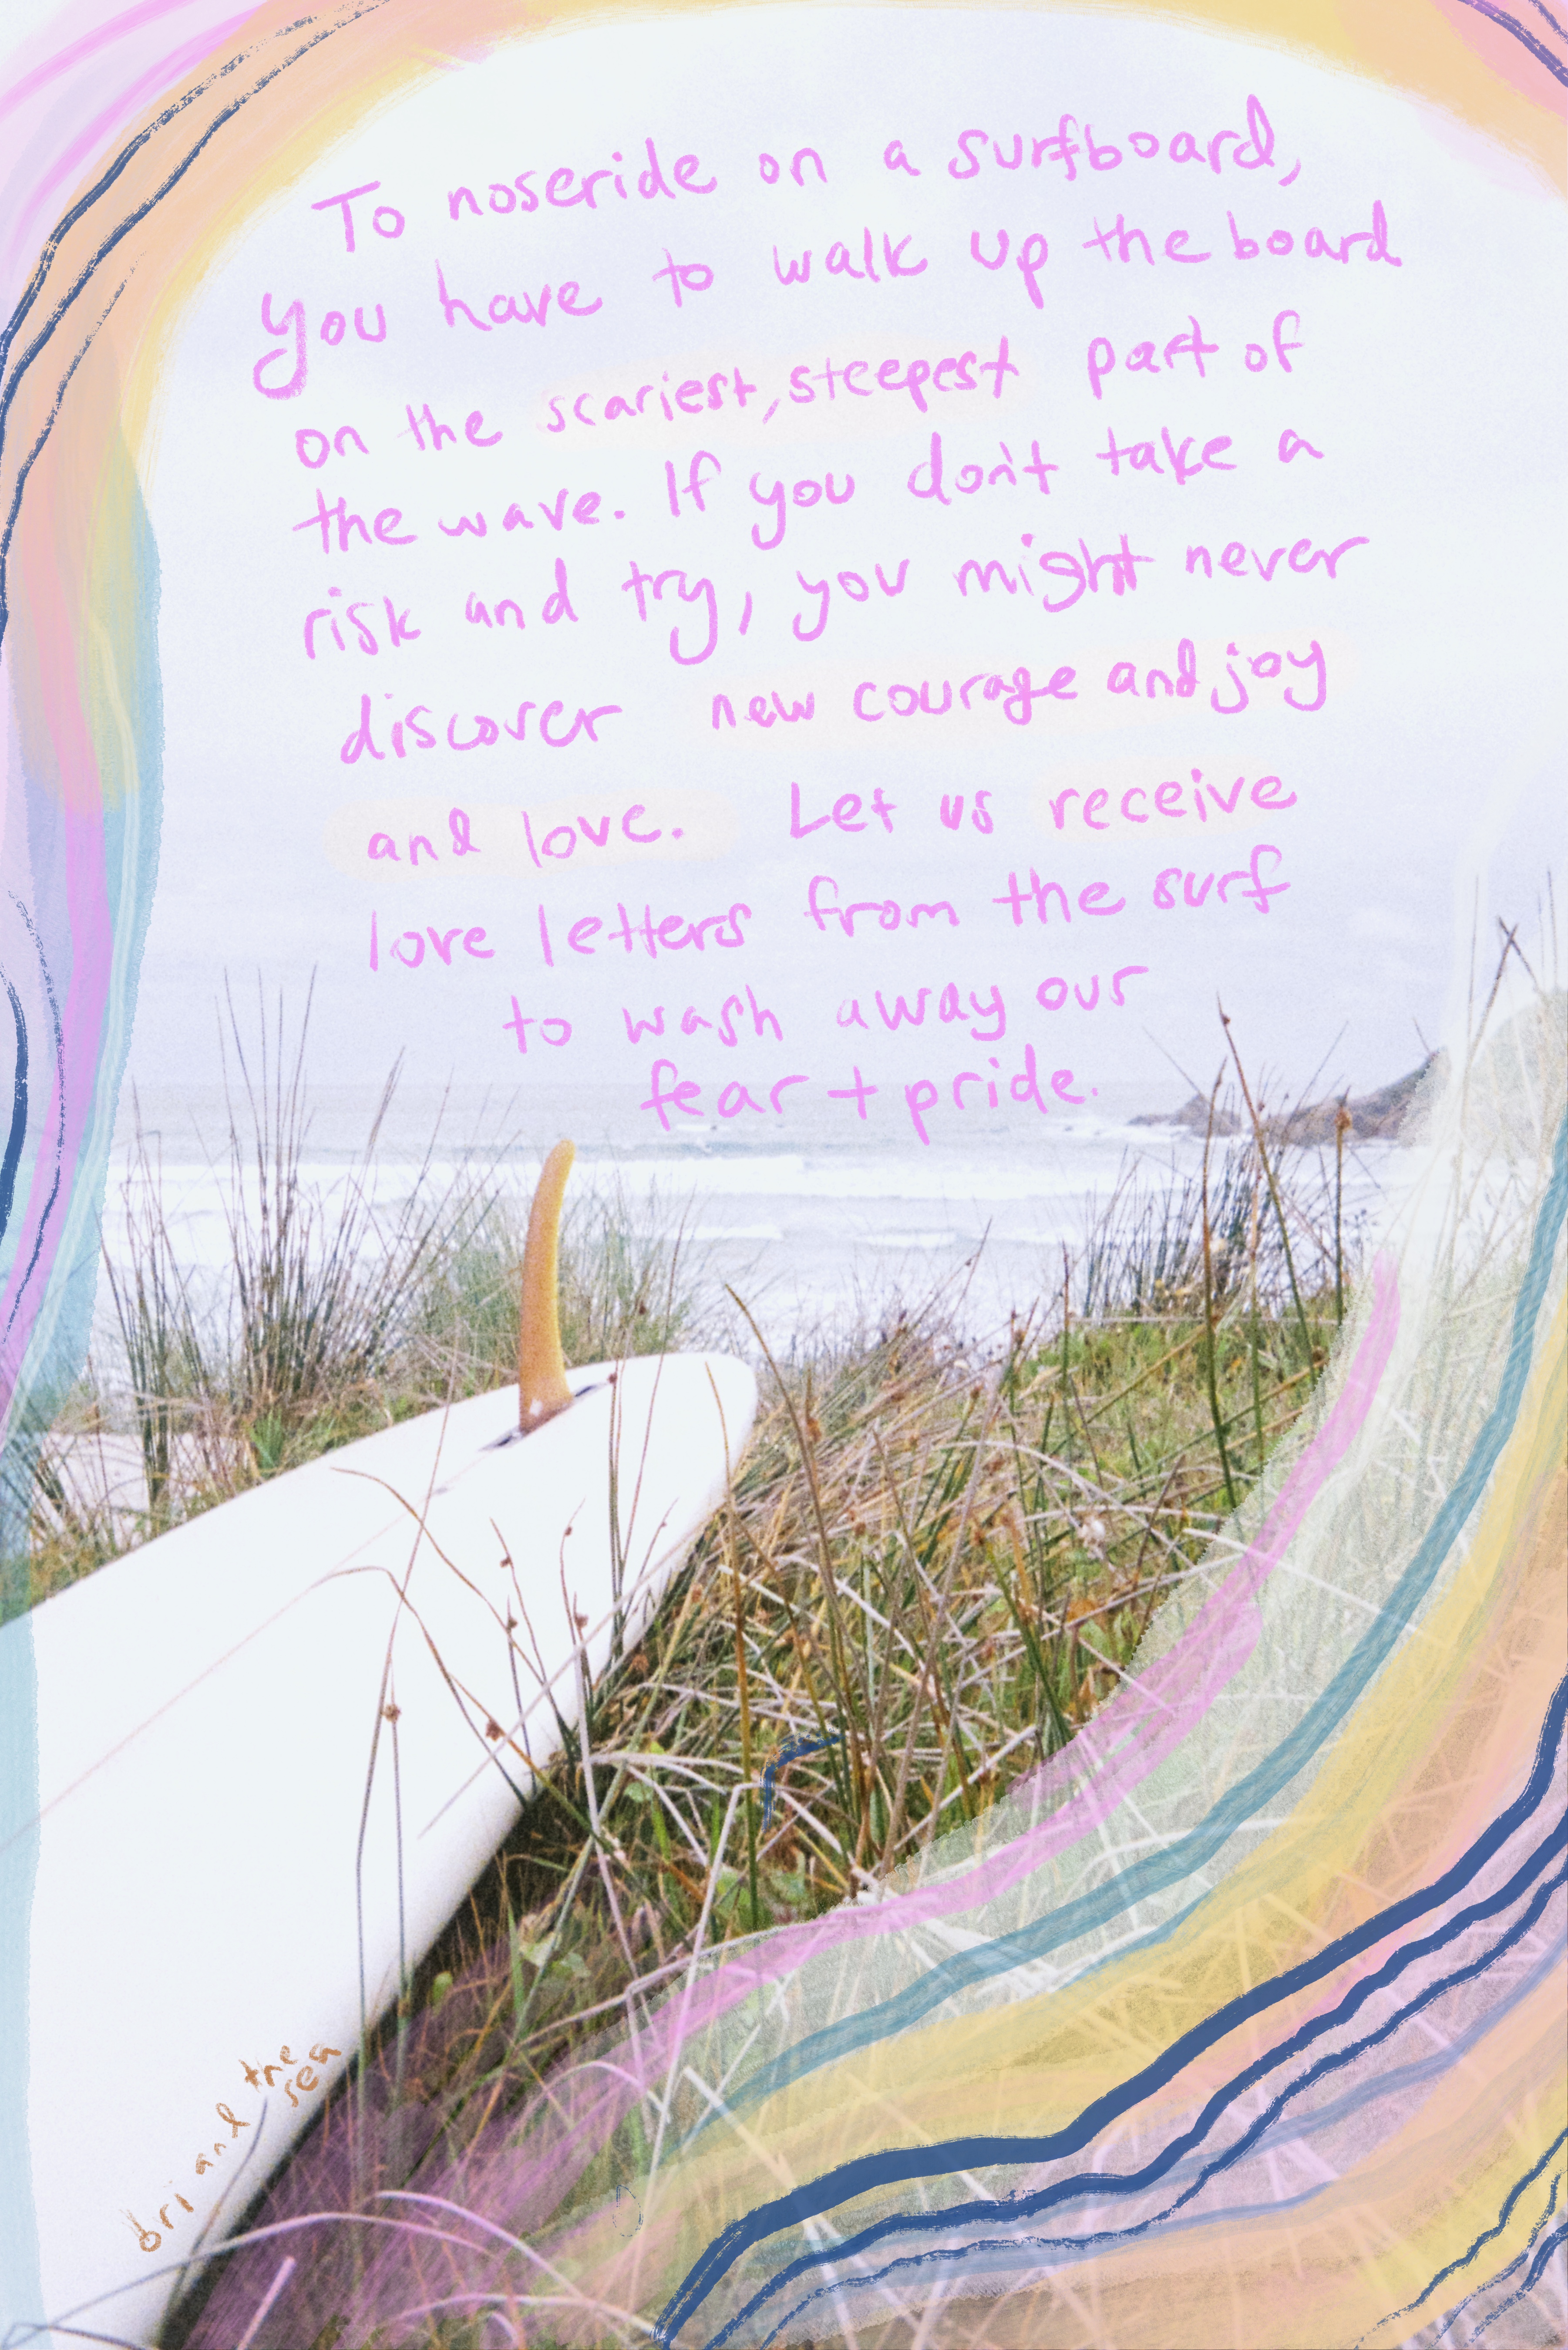 To noseride on a surfboard,
you have to walk up the board
on the scariest, steepest part of
the wave. If you don't take a
risk and try, you might never
discover new courage and joy
and love. Let us receive
love letters from the surf
to wash away our
fear + pride.
bri and the sea